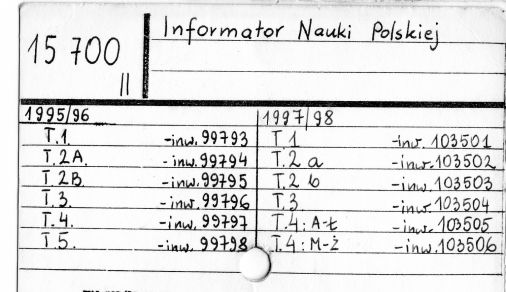 Informator Nauki Polskiej
15 700
II
1995/96
T.1 -inw. 99793
T.2A. -inw. 99794
T.2B. -inw. 99795
T.3. -inw. 99796
T.4. -inw. 99797
T.5. -inw. 99798
1997/98
T.1 -inw. 103501
T.2 a -inw. 103502
T.2 b -inw. 103503
T.3 -inw. 103504
T.4: A-Ł -inw. 103505
T.4: M-Ż -inw. 103506